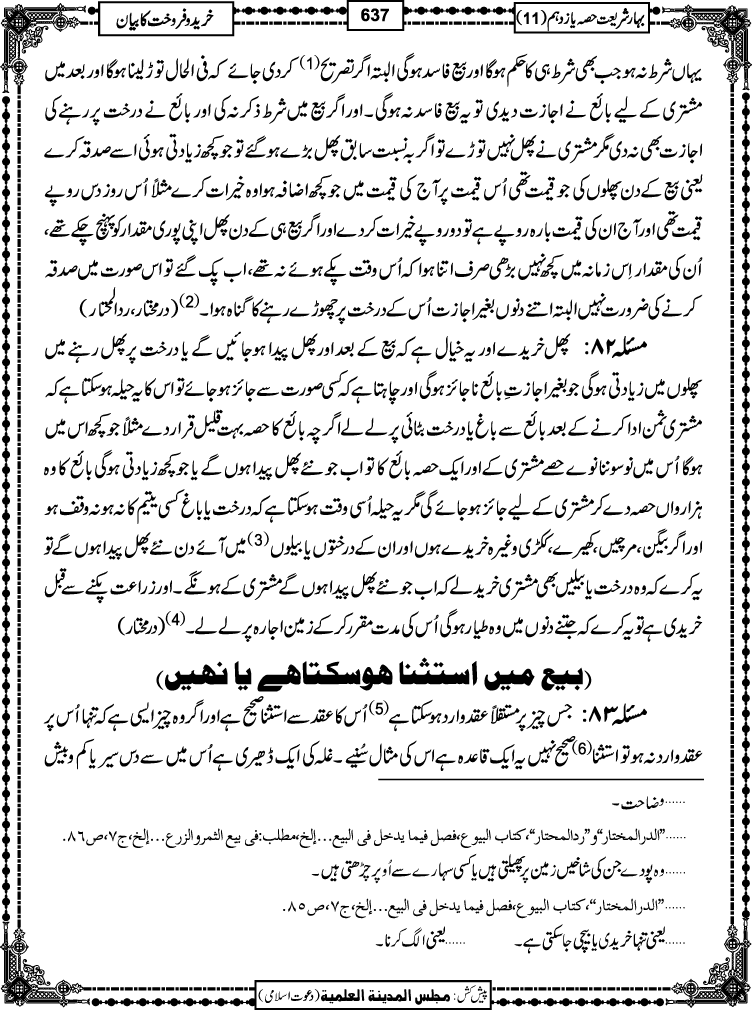 بہار شریعت حصہ یازدہم (11)
637
خرید و فروخت کا بیان
یہاں شرط نہ ہو جب بھی شرط ہی کا حکم ہوگا اور بیع فاسد ہوگی البتہ اگر تصریح(1) کردی جائے کہ فی الحال توڑ لینا ہوگا اور بعد میں
مشتری کے لیے بائع نے اجازت دیدی تو یہ بیع فاسد نہ ہوگی۔ اور اگر بیع میں شرط ذکر نہ کی اور بائع نے درخت پر رہنے کی
اجازت بھی نہ دی مگر مشتری نے پھل نہیں توڑے تو اگر بہ نسبت سابق پھل بڑے ہوگئے تو جو کچھ زیادتی ہوئی اسے صدقہ کرے
یعنی بیع کے دن پھلوں کی جو قیمت تھی اُس قیمت پر آج کی قیمت میں جو کچھ اضافہ ہوا وہ خیرات کرے مثلاً اُس روز دس روپے
قیمت تھی اور آج ان کی قیمت بارہ روپے ہے تو دو روپے خیرات کردے اور اگر بیع ہی کے دن پھل اپنی پوری مقدار کو پہنچ چکے تھے،
اُن کی مقدار اِس زمانہ میں کچھ نہیں بڑھی صرف اتنا ہوا کہ اُس وقت پکے ہوئے نہ تھے، اب پک گئے تو اس صورت میں صدقہ
کرنے کی ضرورت نہیں البتہ اتنے دنوں بغیر اجازت اُس کے درخت پر چھوڑے رہنے کا گناہ ہوا۔(2) (درمختار، ردالمحتار)
مسئلہ ۸۲: پھل خریدے اور یہ خیال ہے کہ بیع کے بعد اور پھل پیدا ہوجائیں گے یا درخت پر پھل رہنے میں
پھلوں میں زیادتی ہوگی جو بغیر اجازتِ بائع ناجائز ہوگی اور چاہتا ہے کہ کسی صورت سے جائز ہوجائے تو اس کا یہ حیلہ ہوسکتا ہے کہ
مشتری ثمن ادا کرنے کے بعد بائع سے باغ یا درخت بٹائی پر لے لے اگرچہ بائع کا حصہ بہت قلیل قرار دے مثلاً جو کچھ اس میں
ہوگا اُس میں نو سو ننانوے حصے مشتری کے اور ایک حصہ بائع کا تو اب جو نئے پھل پیدا ہوں گے یا جو کچھ زیادتی ہوگی بائع کا وہ
ہزارواں حصہ دے کر مشتری کے لیے جائز ہوجائے گی مگر یہ حیلہ اُسی وقت ہوسکتا ہے کہ درخت یا باغ کسی یتیم کا نہ ہو نہ وقف ہو
اور اگر بیگن، مرچیں، کھیرے، ککڑی وغیرہ خریدے ہوں اور ان کے درختوں یا بیلوں(3) میں آئے دن نئے پھل پیدا ہوں گے تو
یہ کرے کہ وہ درخت یا بیلیں بھی مشتری خرید لے کہ اب جو نئے پھل پیدا ہوں گے مشتری کے ہونگے۔ اور زراعت پکنے سے قبل
خریدی ہے تو یہ کرے کہ جتنے دنوں میں وہ طیار ہوگی اُس کی مدت مقرر کرکے زمین اجارہ پر لے لے۔(4) (درمختار)
(بیع میں استثنا ہوسکتا ہے یا نہیں)
مسئلہ ۸۳: جس چیز پر مستقلاً عقد وارد ہوسکتا ہے(5) اُس کا عقد سے استثنا صحیح ہے اور اگر وہ چیز ایسی ہے کہ تنہا اُس پر
عقد وارد نہ ہو تو استثنا(6) صحیح نہیں یہ ایک قاعدہ ہے اس کی مثال سُنیے۔ غلہ کی ایک ڈھیری ہے اُس میں سے دس سیر یا کم و بیش
......وضاحت۔
......”الدرالمختار“و”ردالمحتار“،کتاب البیوع،فصل فیما یدخل فی البیع...إلخ،مطلب:فی بیع الثمر والزرع...إلخ،ج۷،ص۸۶.
......وہ پودے جن کی شاخیں زمین پر پھیلتی ہیں یا کسی سہارے سے اُوپر چڑھتی ہیں۔
......”الدرالمختار“،کتاب البیوع،فصل فیما یدخل فی البیع...إلخ،ج۷،ص۸۵.
......یعنی تنہا خریدی یا بیچی جاسکتی ہے۔ ......یعنی الگ کرنا۔
پیش کش: مجلس المدینۃ العلمیۃ (دعوت اسلامی)